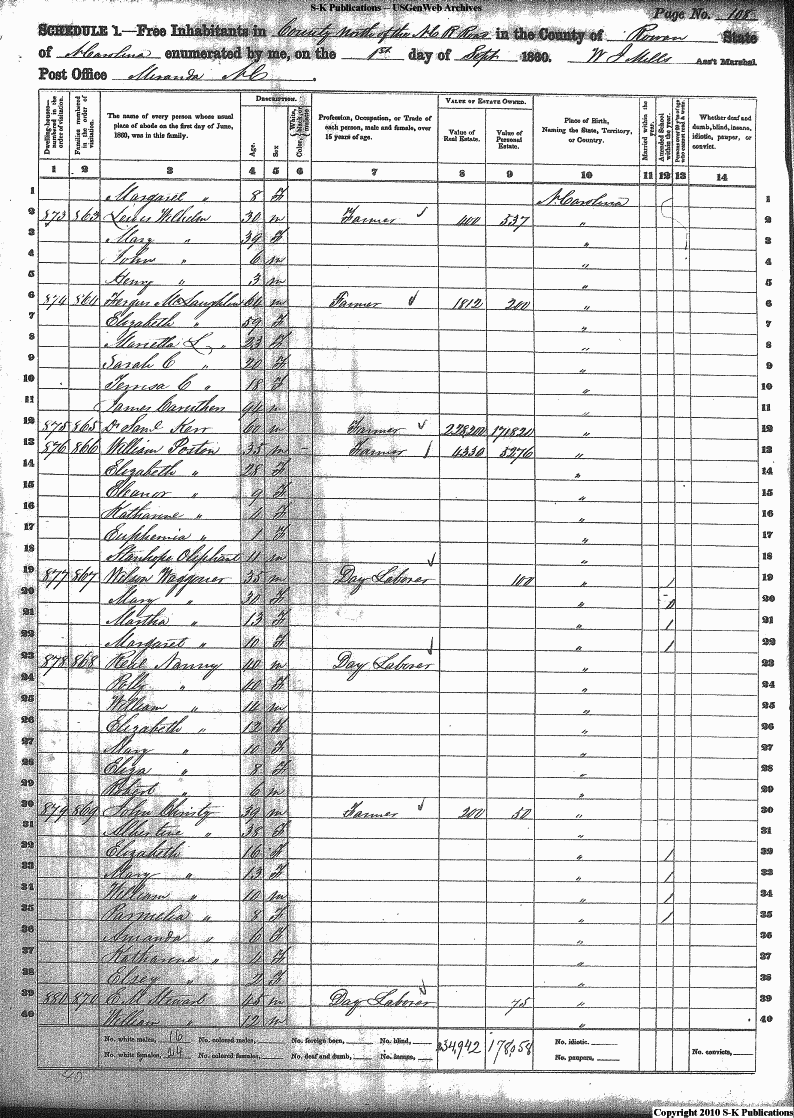 S-K Publications -- USGenWeb Archives
Page No. 108
SCHEDULE 1.—Free Inhabitants in County North of the N C R Road in the County of Rowan State
of N Carolina enumerated by me, on the 1st day of Sept 1860. W J Mills Ass't Marshal.
Post Office Miranda N C.
Dwelling-houses—numbered in the order of visitation. Families numbered in the order of visitation. The name of every person whose usual place of abode on the first day of June, 1860, was in this family. DESCRIPTION. Age. Sex. Color, White, black, or mulatto. Profession, Occupation, or Trade of each person, male and female, over 15 years of age. VALUE OF ESTATE OWNED. Value of Real Estate. Value of Personal Estate. Place of Birth, Naming the State, Territory, or Country. Married within the year. Attended School within the year. Persons over 20 y'rs of age who cannot read & write. Whether deaf and dumb, blind, insane, idiotic, pauper, or convict.
1 2 3 4 5 6 7 8 9 10 11 12 13 14
1 Margaret " 8 F N. Carolina 1
2 873 863 Wilhelm 30 m Farmer 400 537 " 2
3 Mary " 39 F " 3
4 John " 6 m " 4
5 Henry " 3 m " 5
6 874 864 Fergus McLaughlin 64 m Farmer 1812 200 " 6
7 Elizabeth " 59 F " 7
8 Marietta L " 23 F " 8
9 Sarah C " 20 F " 9
10 C " 18 F " 10
11 James Caruthers 94 m " 11
12 875 865 Dr Saml Kerr 60 m Farmer 228200 171820 " 12
13 876 866 William Poston 35 m - Farmer 4330 5276 " 13
14 Elizabeth " 28 F " 14
15 Eleanor " 9 F " 15
16 Katharine " 4 F " 16
17 Euphemia " 1 F " 17
18 Stanhope Oliphant 11 m " 18
19 877 867 Wilson Waggoner 35 m Day Laborer 100 " / 19
20 Mary " 30 F " 20
21 Martha " 13 F " / 21
22 Margaret " 10 F " / 22
23 878 868 Nanny 40 m Day Laborer " 23
24 Polly " 40 F " 24
25 William " 14 m " 25
26 Elizabeth " 12 F " 26
27 Mary " 10 F " 27
28 Eliza " 8 F " 28
29 Robert " 6 m " 29
30 879 869 John Christy 39 m Farmer 200 50 " 30
31 Albertine " 38 F " 31
32 Elizabeth 16 F " / 32
33 Mary " 13 F " / 33
34 William " 10 m " / 34
35 Parmelia " 8 F " / 35
36 Amanda " 6 F " 36
37 Katharine " 4 F " 37
38 Elsey " 2 F " 38
39 880 870 E. M. Stewart 45 m Day Laborer 75 " 39
40 William " 12 m " 40
No. white males, 16 No. colored males, No. foreign born, No. blind, 234,942 178,058 No. idiotic.
No. white females, 24 No. colored females, No. deaf and dumb, No. insane, No. paupers, No. convicts,
40
Copyright 2010 S-K Publications